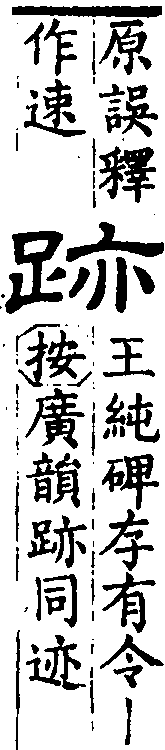 原誤釋
作速
跡
王純碑存有令｜
按廣韻跡同迹